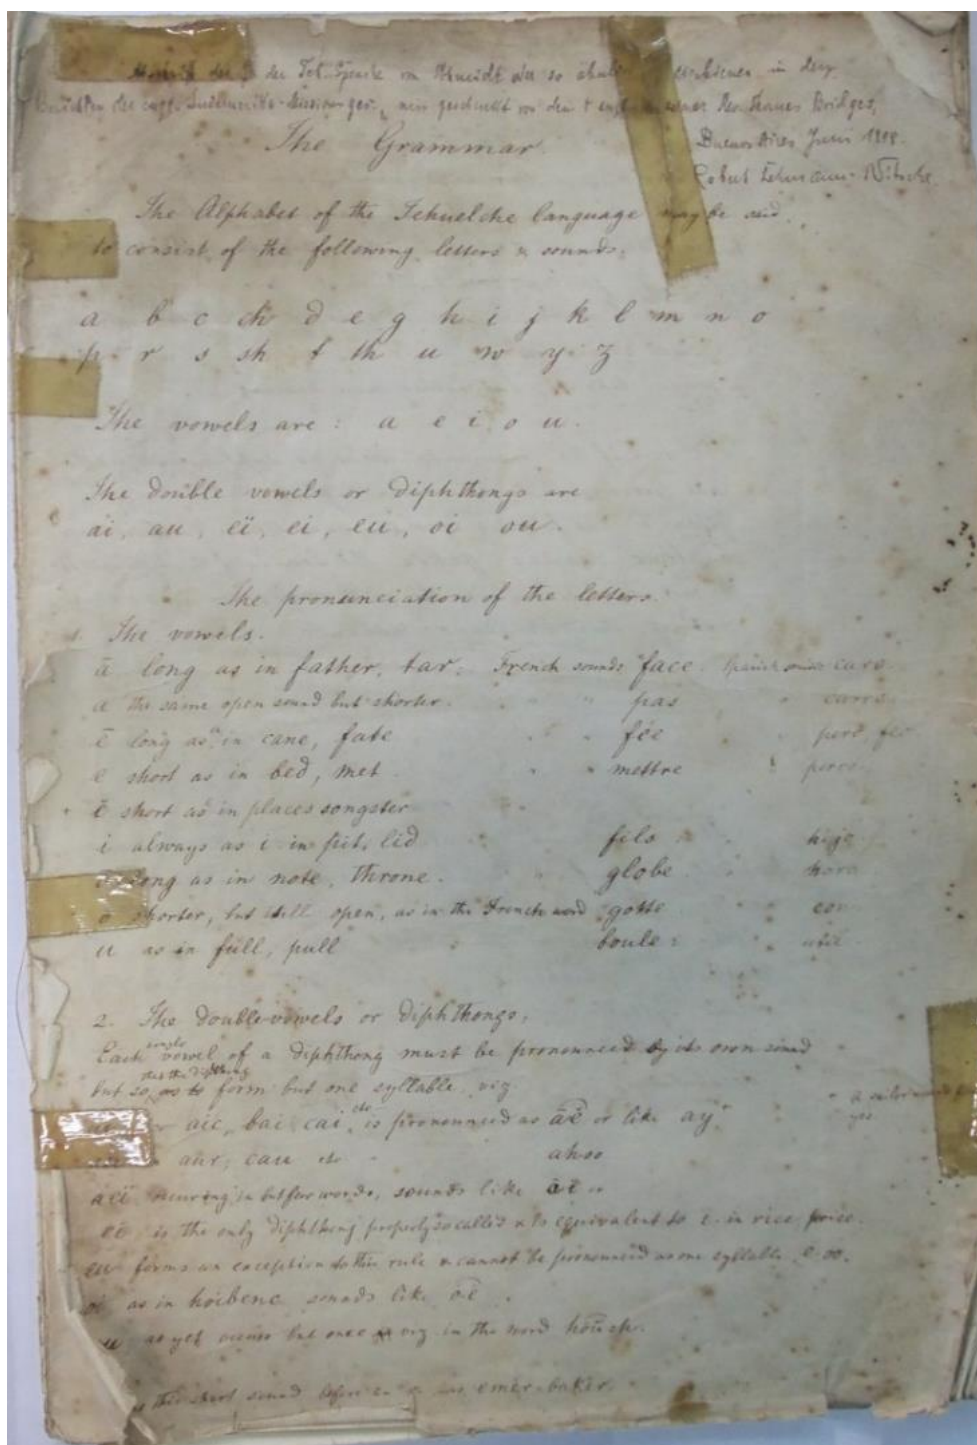 der Tsh. Sprache von Schmidt
Südamerika-Missionsges., mir geschenkt von dem Thomas Bridges,
The Grammar.
Buenos Aires Juni
Robert Lehmann-Nitsche.
The Alphabet of the Tehuelche language may be said
to consist of the following letters & sounds,
a b c ch d e g h i j k l m n o
p r s sh t th u w y z
The vowels are : a e i o u.
The double vowels or diphthongs are
ai, au, eï, ei, eu, oi ou.
The pronunciation of the letters.
1. The vowels.
ā long as in father, tar: French sounds face. Spanish sounds caro
a the same open sound but shorter. " " pas " carro
ē long as in cane, fate " " fée " feo
e short as in bed, met " " mettre " perro
ĕ short as in places songster
i always as i in pit, lid " fils " higo
long as in note, throne. " globe " hora
o shorter, but still open, as in the French word gotte "
u as in full, pull " boule : "
2. The double-vowels or diphthongs,
Each single vowel of a diphthong must be pronounced by its own sound
but so, as to form but one syllable. viz.
aic, bai cai, etc is pronounced as āē or like ay"
aur, cau etc ahoo
occuring in but few words, sounds like
ei is the only diphthong properly so called & is equivalent to i. in rice price.
eu forms an exception to this rule & cannot be pronounced as one syllable e-oo.
oi as in hoibene sounds like ōē
as yet occurs but once viz. in the word
this short sound before